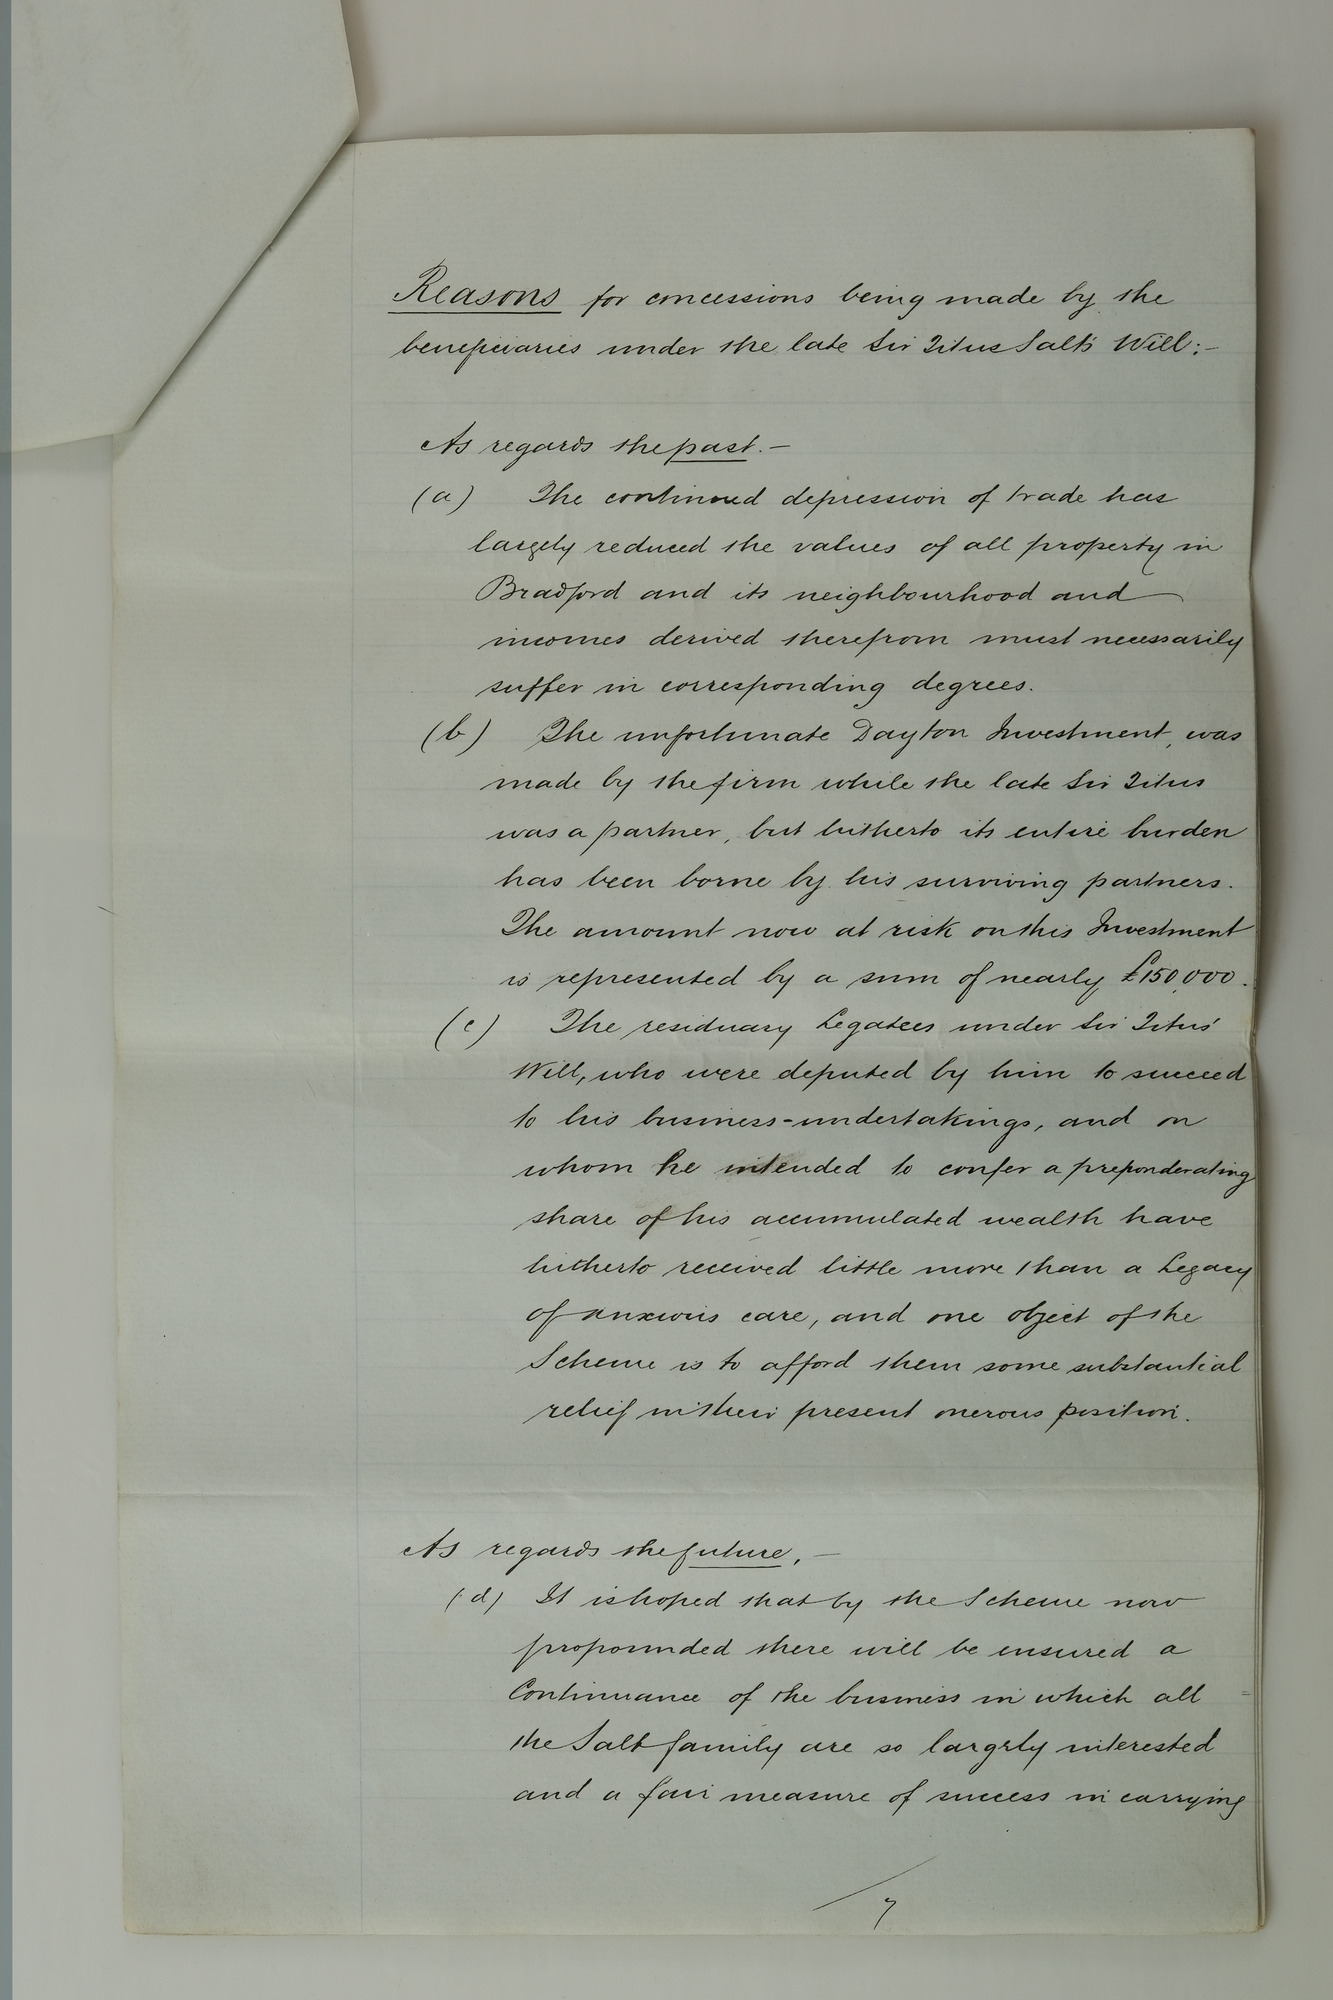 Reasons for concessions being made by the
beneficiaries under the late Sir Titus Salt's Will:-
As regards the past.-
(a) The continued depression of trade has
largely reduced the values of all property in
Bradford and its neighbourhood and
incomes derived therefrom must necessarily
suffer in corresponding degrees.
(b) The unfortunate Dayton Investment, was
made by the firm while the late Sir Titus
was a partner, but hitherto its entire burden
has been borne by his surviving partners.
The amount now at risk on this Investment
is represented by a sum of nearly £150,000.
(c) The residuary Legatees under Sir Titus'
Will, who were deputed by him to succeed
to his business-undertakings, and on
whom he intended to confer a preponderating
share of his accumulated wealth have
hitherto received little more than a Legacy
of anxious care, and one object of the
Scheme is to afford them some substantial
relief in their present onerous position.
As regards the future.-
(d) It is hoped that by the Scheme now
propounded there will be ensured a
Continuance of the business in which all
the Salt family are so largely interested
and a fair measure of success in carrying